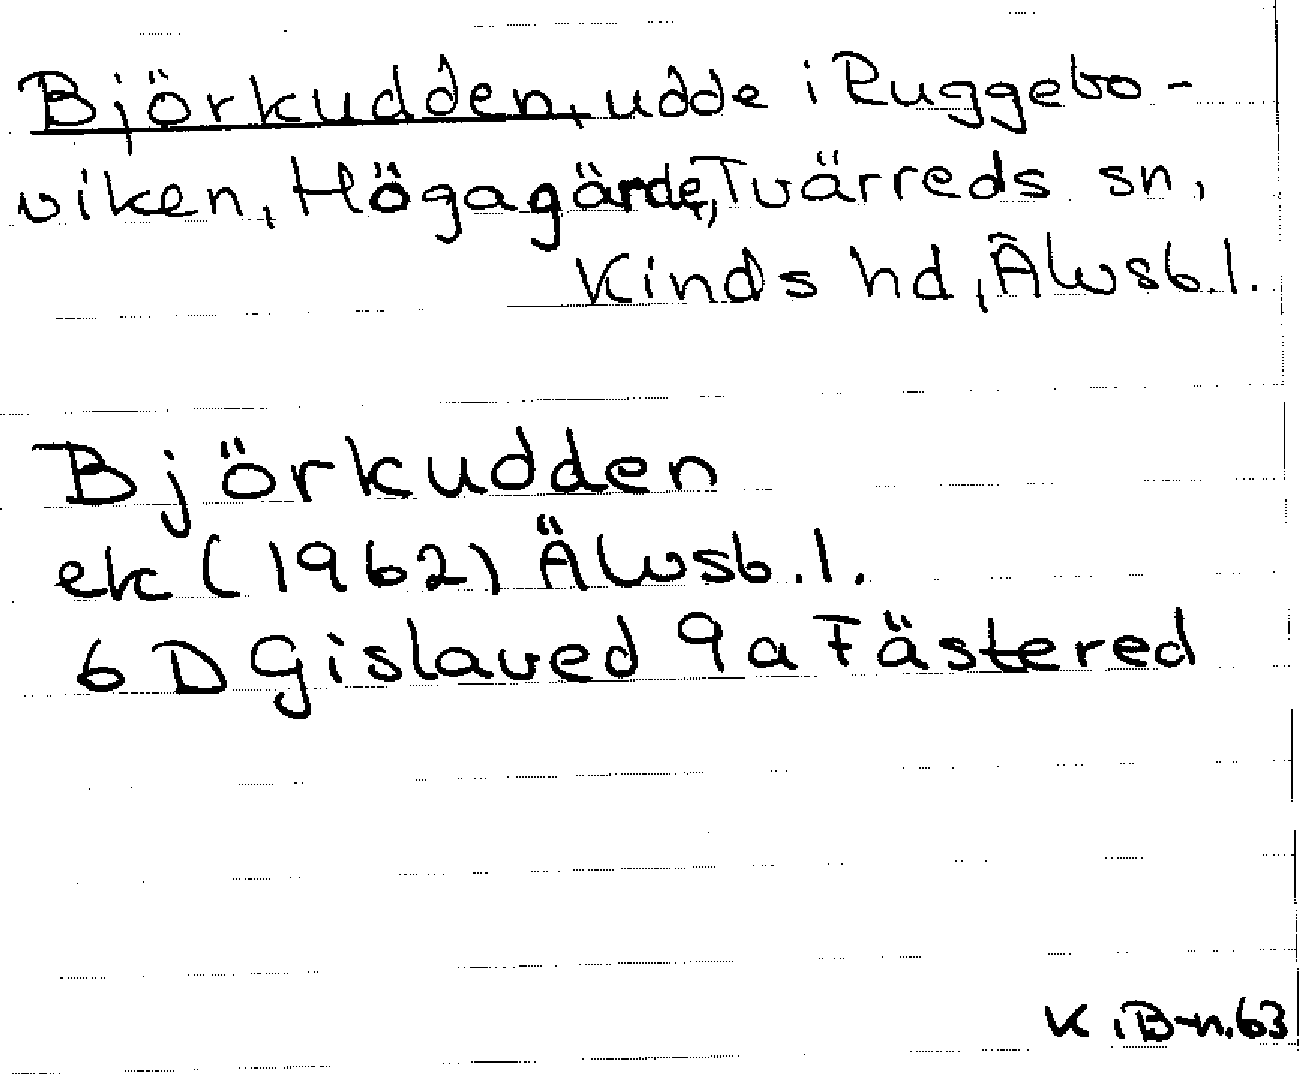 Björkudden, udde i Ruggebo-
viken, Högagärde, Tvärreds sn,
Kinds hd, Älvsb.l.
Björkudden
ek (1962) Älvsb.l.
6D Gislaved 9a Fästered
K iB-n.63